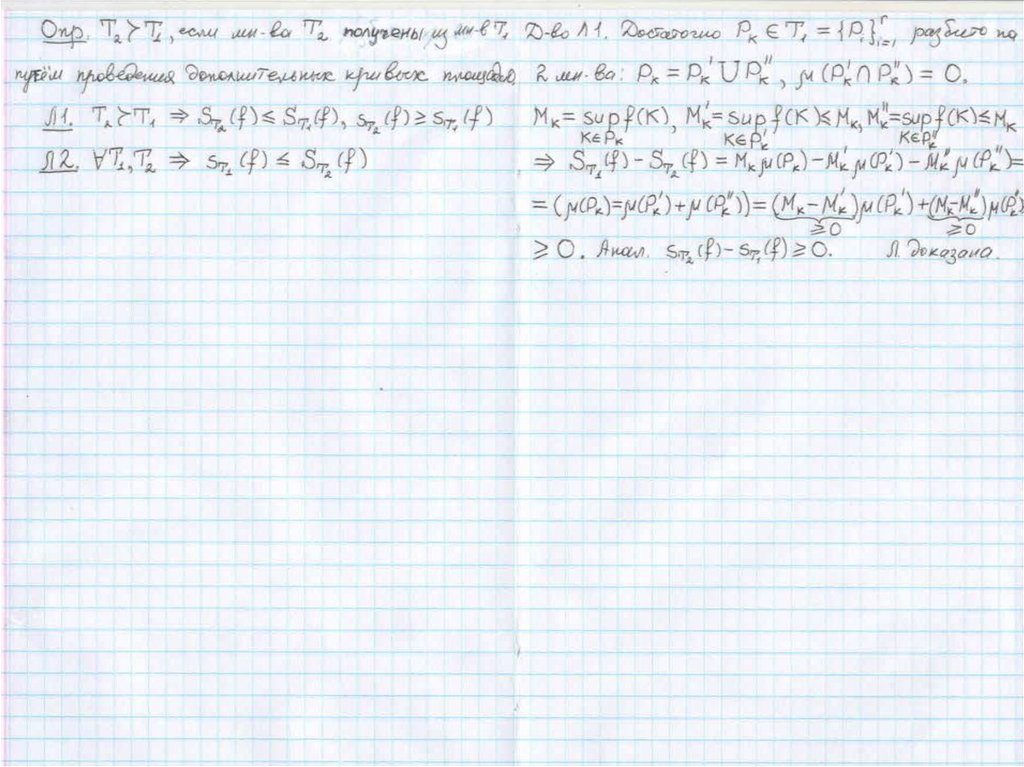 Опр. T₂ ≻ T₁, если мн-ва T₂ получены из мн-в T₁
путём проведения дополнительных кривых площадью
Л1. T₂ ≻ T₁ ⇒ S_T₂(f) ≤ S_T₁(f), s_T₂(f) ≥ s_T₁(f)
Л2. ∀T₁, T₂ ⇒ s_T₁(f) ≤ S_T₂(f)
Д-во Л1. Достаточно P_K ∈ T₁ = {P_i}ⁿ_{i=1} разбито на
2 мн-ва: P_K = P_K' ∪ P_K'', μ(P_K' ∩ P_K'') = 0.
M_K = sup f(K), M_K' = sup f(K) ≤ M_K, M_K'' = sup f(K) ≤ M_K
K∈P_K K∈P_K' K∈P_K''
⇒ S_T₁(f) − S_T₂(f) = M_K μ(P_K) − M_K' μ(P_K') − M_K'' μ(P_K'') =
= (μ(P_K) = μ(P_K') + μ(P_K'')) = (M_K − M_K') μ(P_K') + (M_K − M_K'') μ(P_K'')
≥ 0 ≥ 0
≥ 0. Анал. s_T₂(f) − s_T₁(f) ≥ 0. Л. доказана.